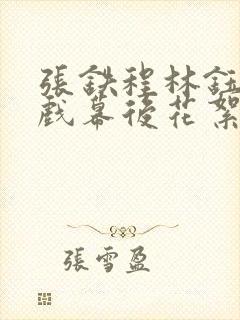 張鈇程林鈺
戲幕後花絮
張雪盈